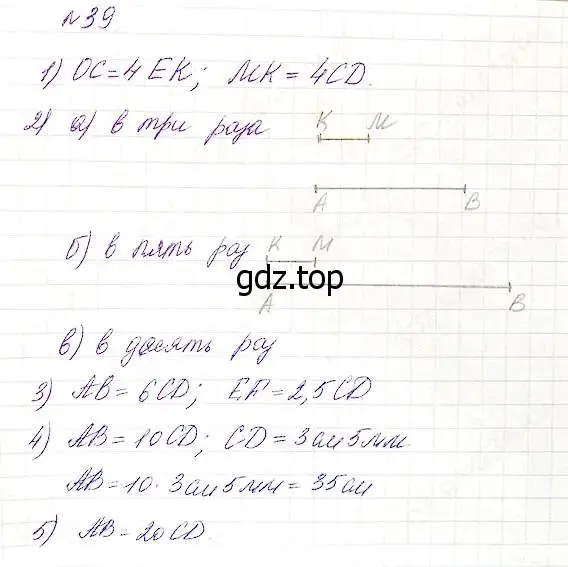 №39
1) OC = 4 EK; MK = 4CD.
2) а) в три раза K M
A B
б) в пять раз K M
gdz.top
A B
в) в десять раз
3) AB = 6CD; EF = 2,5CD
4) AB = 10CD; CD = 3 см 5 мм
AB = 10 · 3 см 5 мм = 35 см
5) AB = 20 CD.